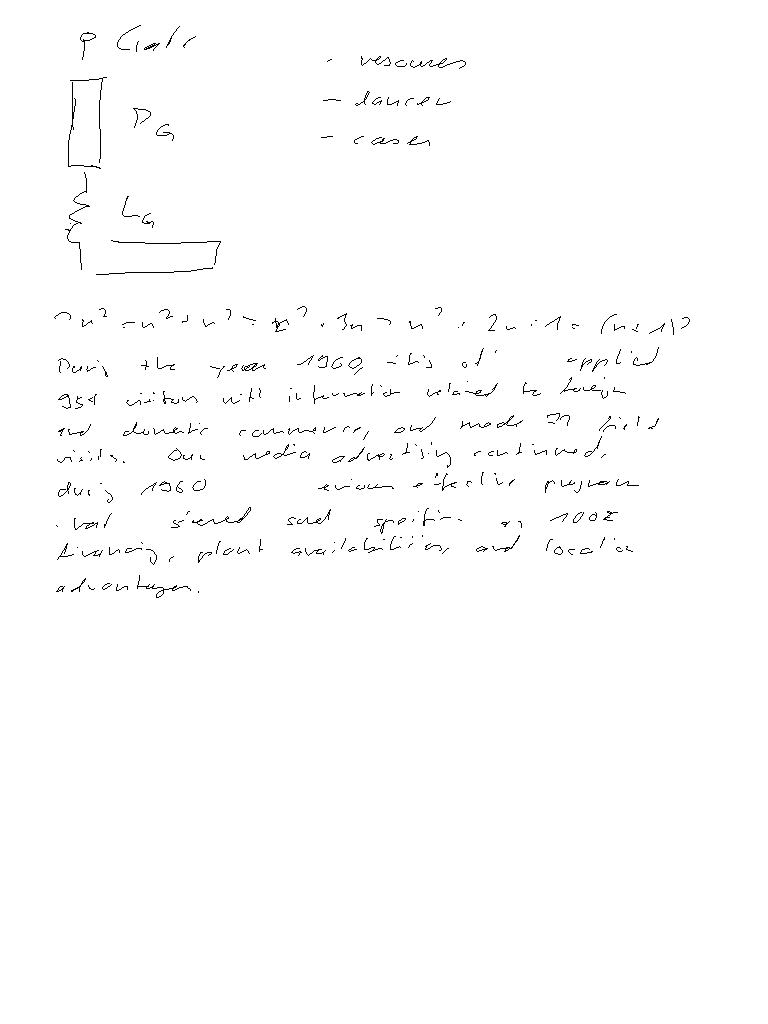 Gate
- resources
- lancer
- cases
R_G
L_G
2n² = n² + n² > n² + 3n > n² + 2n + 1 = (n + 1)²
During the year 1960, this of applied
954 visitors with information related to foreign
and domestic commerce, and made 29 field
visits. Our media advertising continued,
during 1960 evious effective program
stressed such specifi as 100%
financing, plant availabilities, and location
advantages.